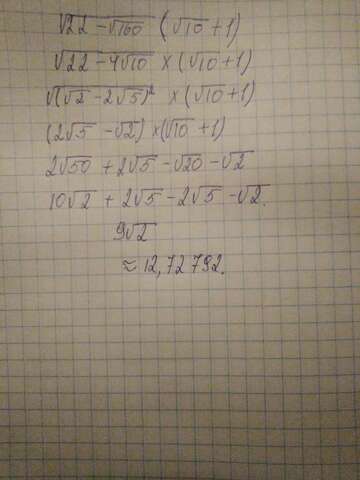 √22 - √160 (√10 + 1)
√22 - 4√10 × (√10 + 1)
√(√2 - 2√5)² × (√10 + 1)
(2√5 - √2) × (√10 + 1)
2√50 + 2√5 - √20 - √2
10√2 + 2√5 - 2√5 - √2.
9√2
≈ 12,72792.